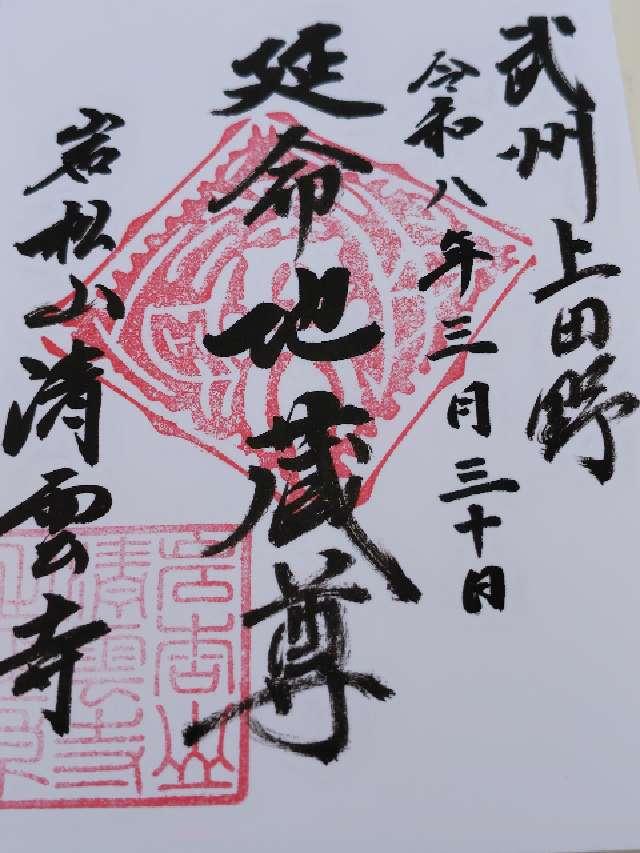 武州上田野
令和八年三月三十日
延命地蔵尊
岩松山清雲寺